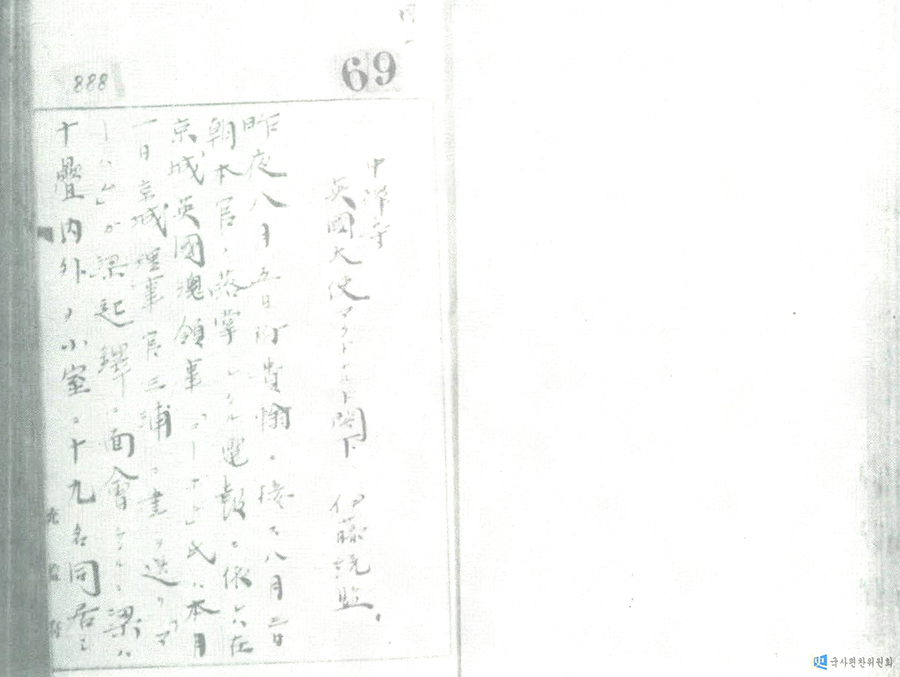 69
888
中禅寺
英國大使マクドナルド閣下 伊藤統監
昨夜八月五日附貴翰ニ接ス八月三日
朝本官ノ落掌シタル電報ニ依レハ在
京城英國總領事 氏ハ本月
一日京城理事官三浦ニ書ヲ送リ「マ
ーハム」カ梁起鐸ニ面會シタルニ梁ハ
十疊内外ノ小室ニ十九名同居シ
統監府
국사편찬위원회